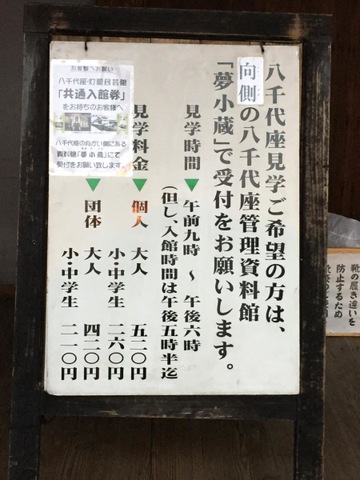 八千代座見学ご希望の方は、
向側の八千代座管理資料館
「夢小蔵」で受付をお願いします。
見学時間▼午前九時 〜 午後六時
(但し、入館時間は午後五時半迄
見学料金▼個人 大人 五二〇円
小・中学生 二六〇円
▼団体 大人 四二〇円
小・中学生 二一〇円
お客様へお願い
八千代座・灯籠民芸館
「共通入館券」
をお持ちのお客様へ
八千代座の向かい側にある
資料館「夢小蔵」にて
受付をお願い致します。
靴の履き違いを
防止するため